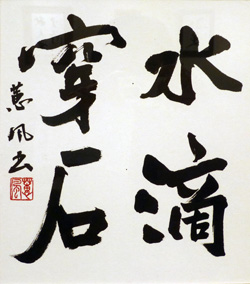 水滴
穿石
蕙风书